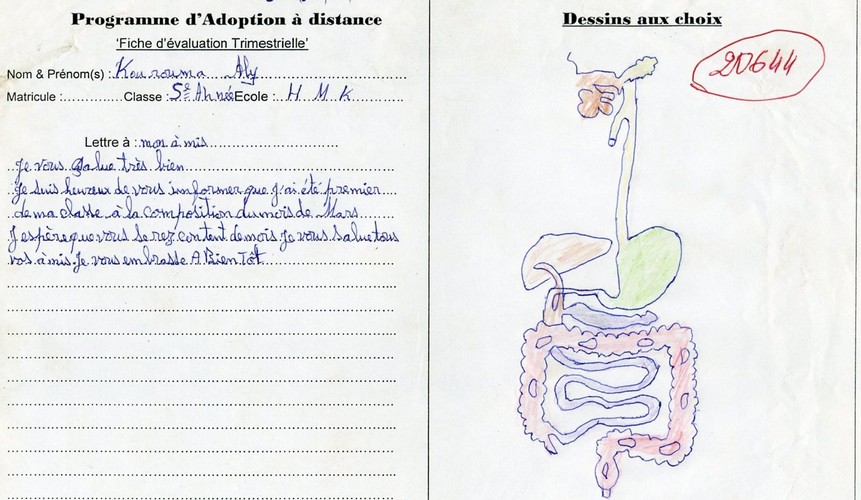 Programme d'Adoption à distance
'Fiche d'évaluation Trimestrielle'
Nom & Prénom(s) : Kourouma Aly
Matricule : Classe : 5è Année Ecole : H M K
Lettre à : mon à mis
Je vous salue très bien
Je suis heureux de vous imformer que j'ai été premier
de ma classe à la composition du mois de Mars
J'espère que vous serez contont de mois je vous salue tous
vos à mis. Je vous embrasse A Bien Tôt
Dessins aux choix
20644